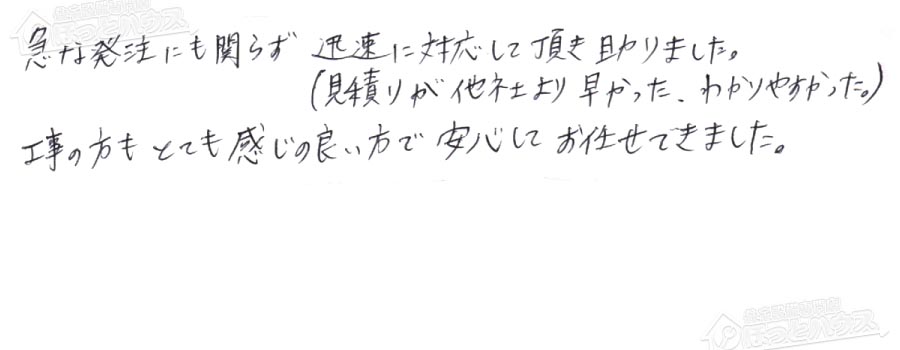 急な発注にも関らず 迅速に対応して頂き助りました。
(見積りが他社より早かった、わかりやすかった。)
工事の方もとても感じの良い方で安心してお任せできました。
ほっとハウス
ほっとハウス